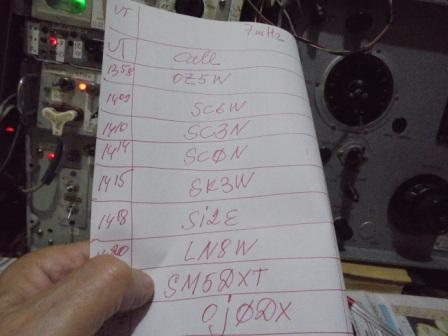 UT 7 mHz
UT Call
1358 OZ5W
1409 SC6W
1410 SC3N
1414 SCØN
1415 SK3W
1418 Si2E
1420 LN8W
SM5DXT
OjØDX